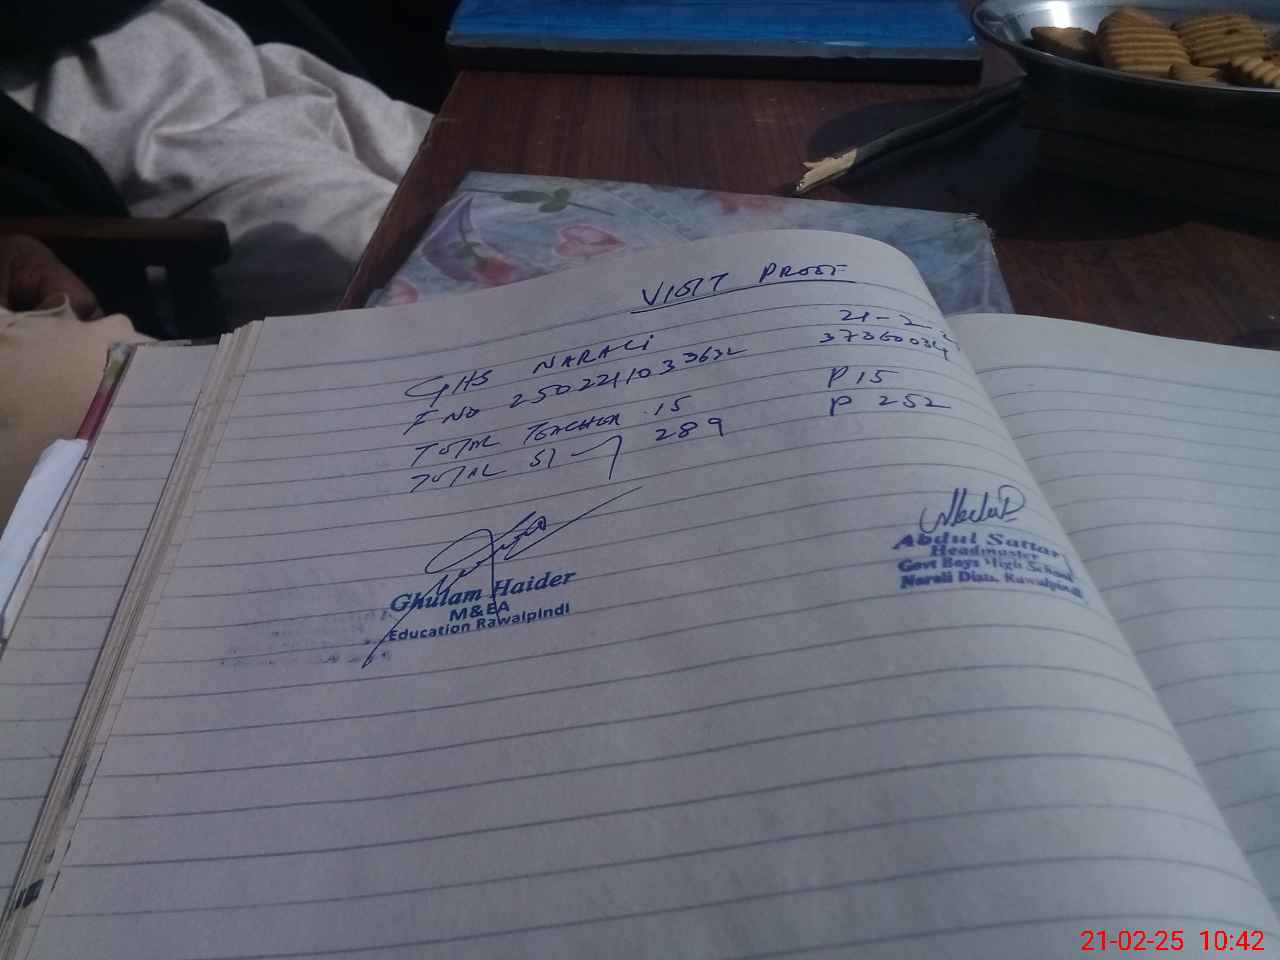 VISIT PROOF
21-2-
GHS NARALI
37360034
F NO 2502211033632
TOTAL TEACHER 15 P 15
TOTAL ST 289 P 252
Ghulam Haider
M&EA
Education Rawalpindi
Abdul Sattar
Headmaster
Govt Boys High School
Narali Distt. Rawalpindi
21-02-25 10:42